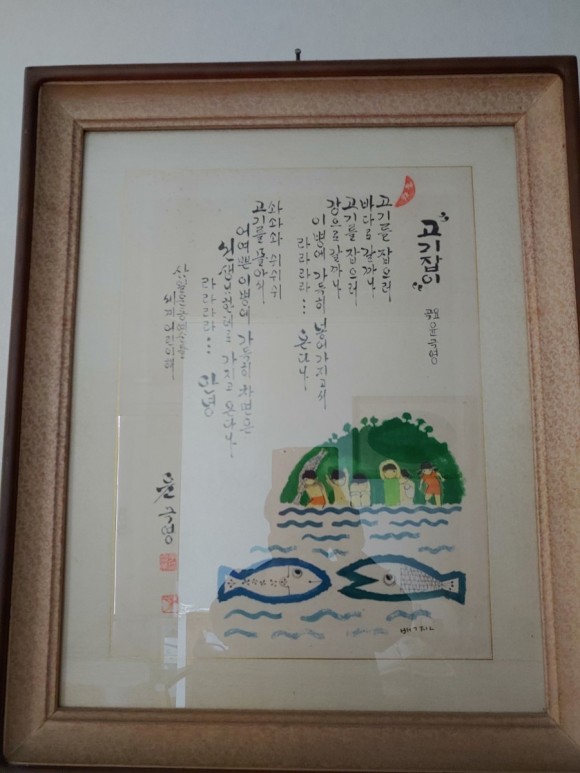 "고기잡이"
윤극영
고기를 잡으러
바다로 갈까나
고기를 잡으러
강으로 갈까나
이 병에 가득히 넣어가지고서
라라라라··· 온다나
솨솨솨 쉬쉬쉬
고기를 몰아서
어여쁜 이 병에 가득히 차면은
선생님한테로 가지고 온다나
라라라라··· 안녕
윤극영